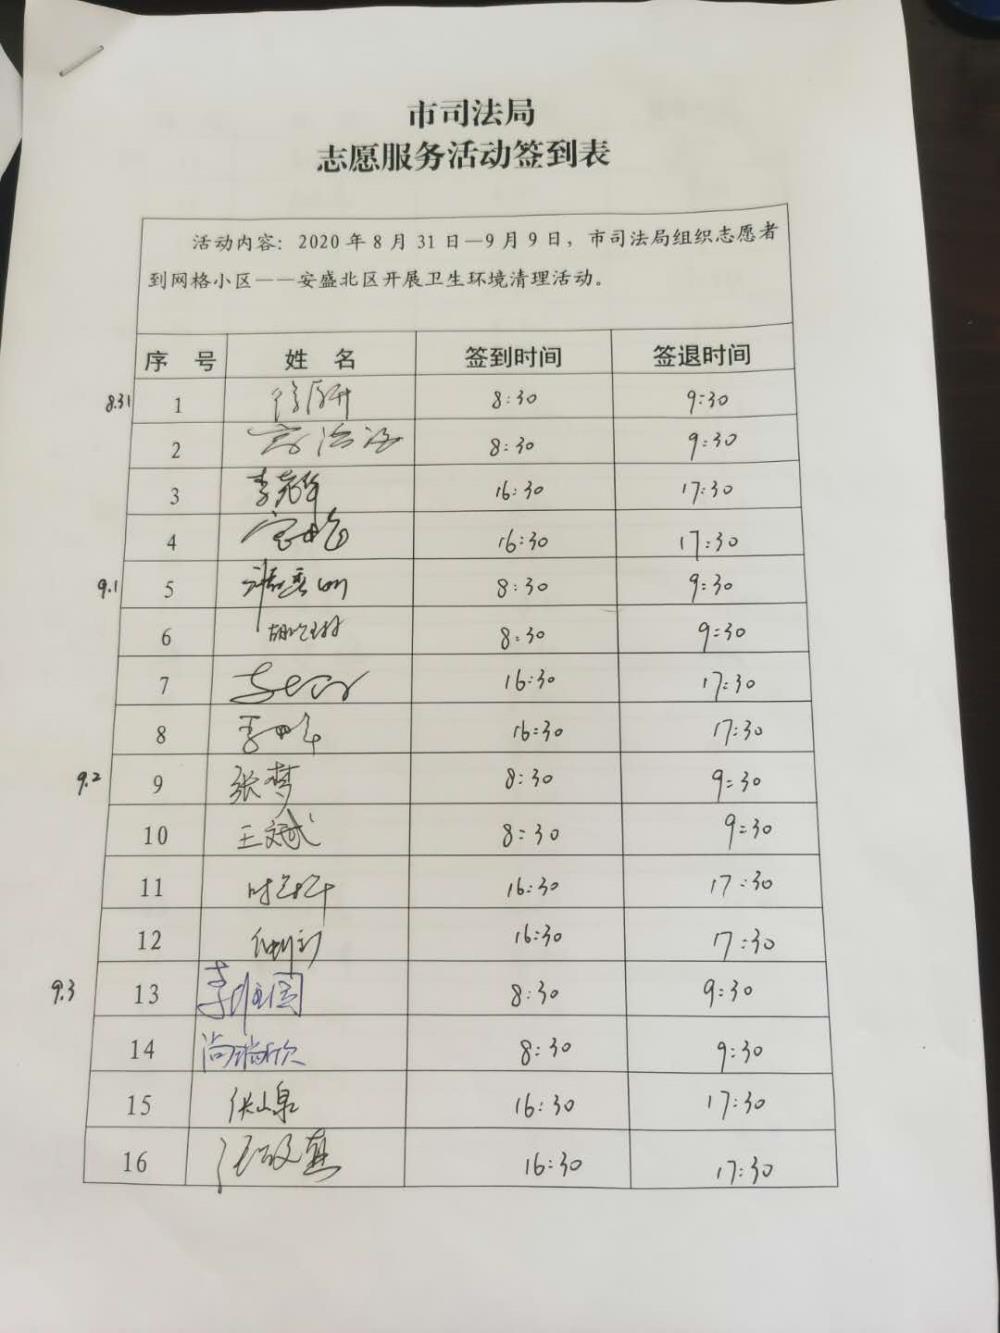 市司法局
志愿服务活动签到表
活动内容：2020年8月31日—9月9日，市司法局组织志愿者
到网格小区——安盛北区开展卫生环境清理活动。
序 号 姓 名 签到时间 签退时间
8.31 1 8:30 9:30
2 8:30 9:30
3 16:30 17:30
4 16:30 17:30
9.1 5 8:30 9:30
6 8:30 9:30
7 16:30 17:30
8 16:30 17:30
9.2 9 张梦 8:30 9:30
10 王文斌 8:30 9:30
11 16:30 17:30
12 16:30 17:30
9.3 13 8:30 9:30
14 尚瑞欣 8:30 9:30
15 16:30 17:30
16 16:30 17:30